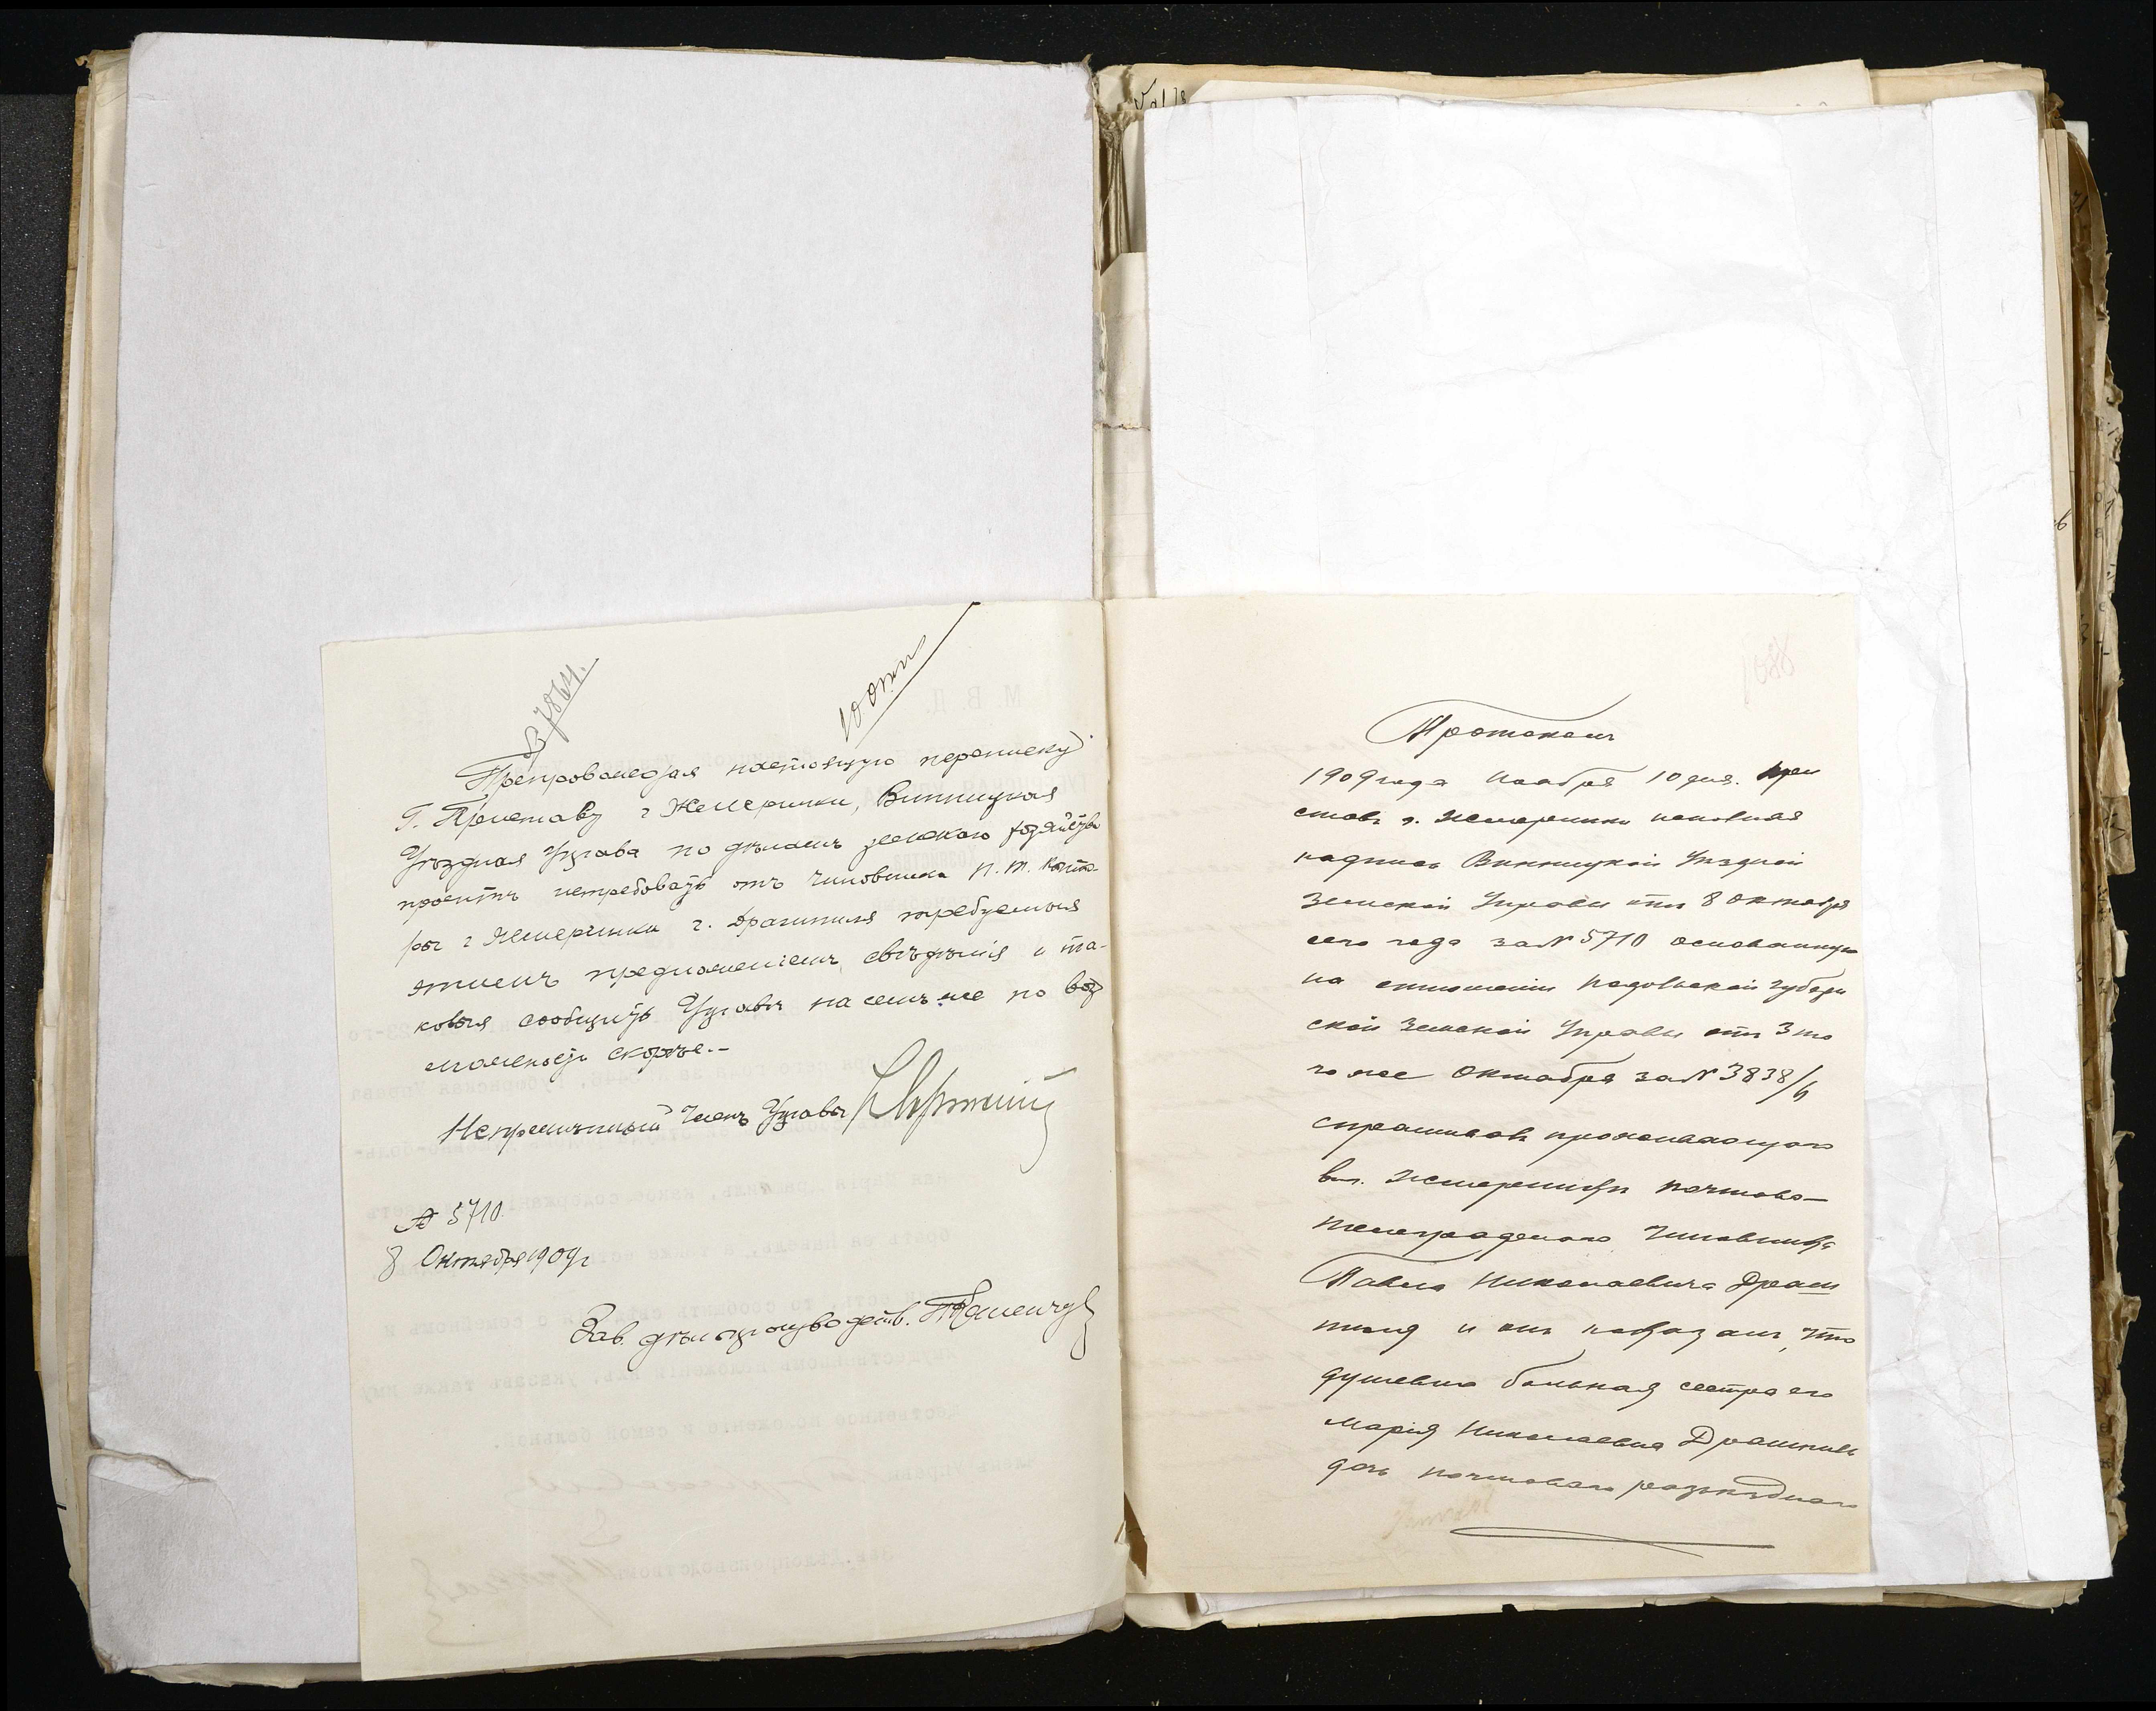 В 7864.
10 окт
Препровождая настоящую переписку
Г. Приставу г Жмеринки, Винницкая
Уѣздная Управа по дѣламъ земскаго хозяйства
проситъ истребовать отъ чиновника п. т. конто-
ры г Жмеринки г. Драгомиля требуемыя
этимъ предложеніемъ свѣдѣнія и та-
ковыя сообщить Управѣ на семъ же по воз
можности скорѣе.-
Непремѣнный Членъ Управы
№ 5710
8 Октября 1909 г
Зав. дѣлопроизводств.
Протоколъ
1909 года Ноября 10 дня. При
ставъ г. Жмеринки исполняя
надпись Винницкой Уѣздной
Земской Управы отъ 8 Октября
сего года за № 5710 основанную
на отношеніи Подольской Губерн
ской Земской Управы отъ 3 то
го же Октября за № 3838/
спрашивалъ проживающаго
въ г. Жмеринкѣ почтово-
телеграфнаго Чиновника
Павла Николаевича
и онъ показалъ, что
душевно больная сестра его
Марія Николаевна
дочь почтоваго разъѣздного